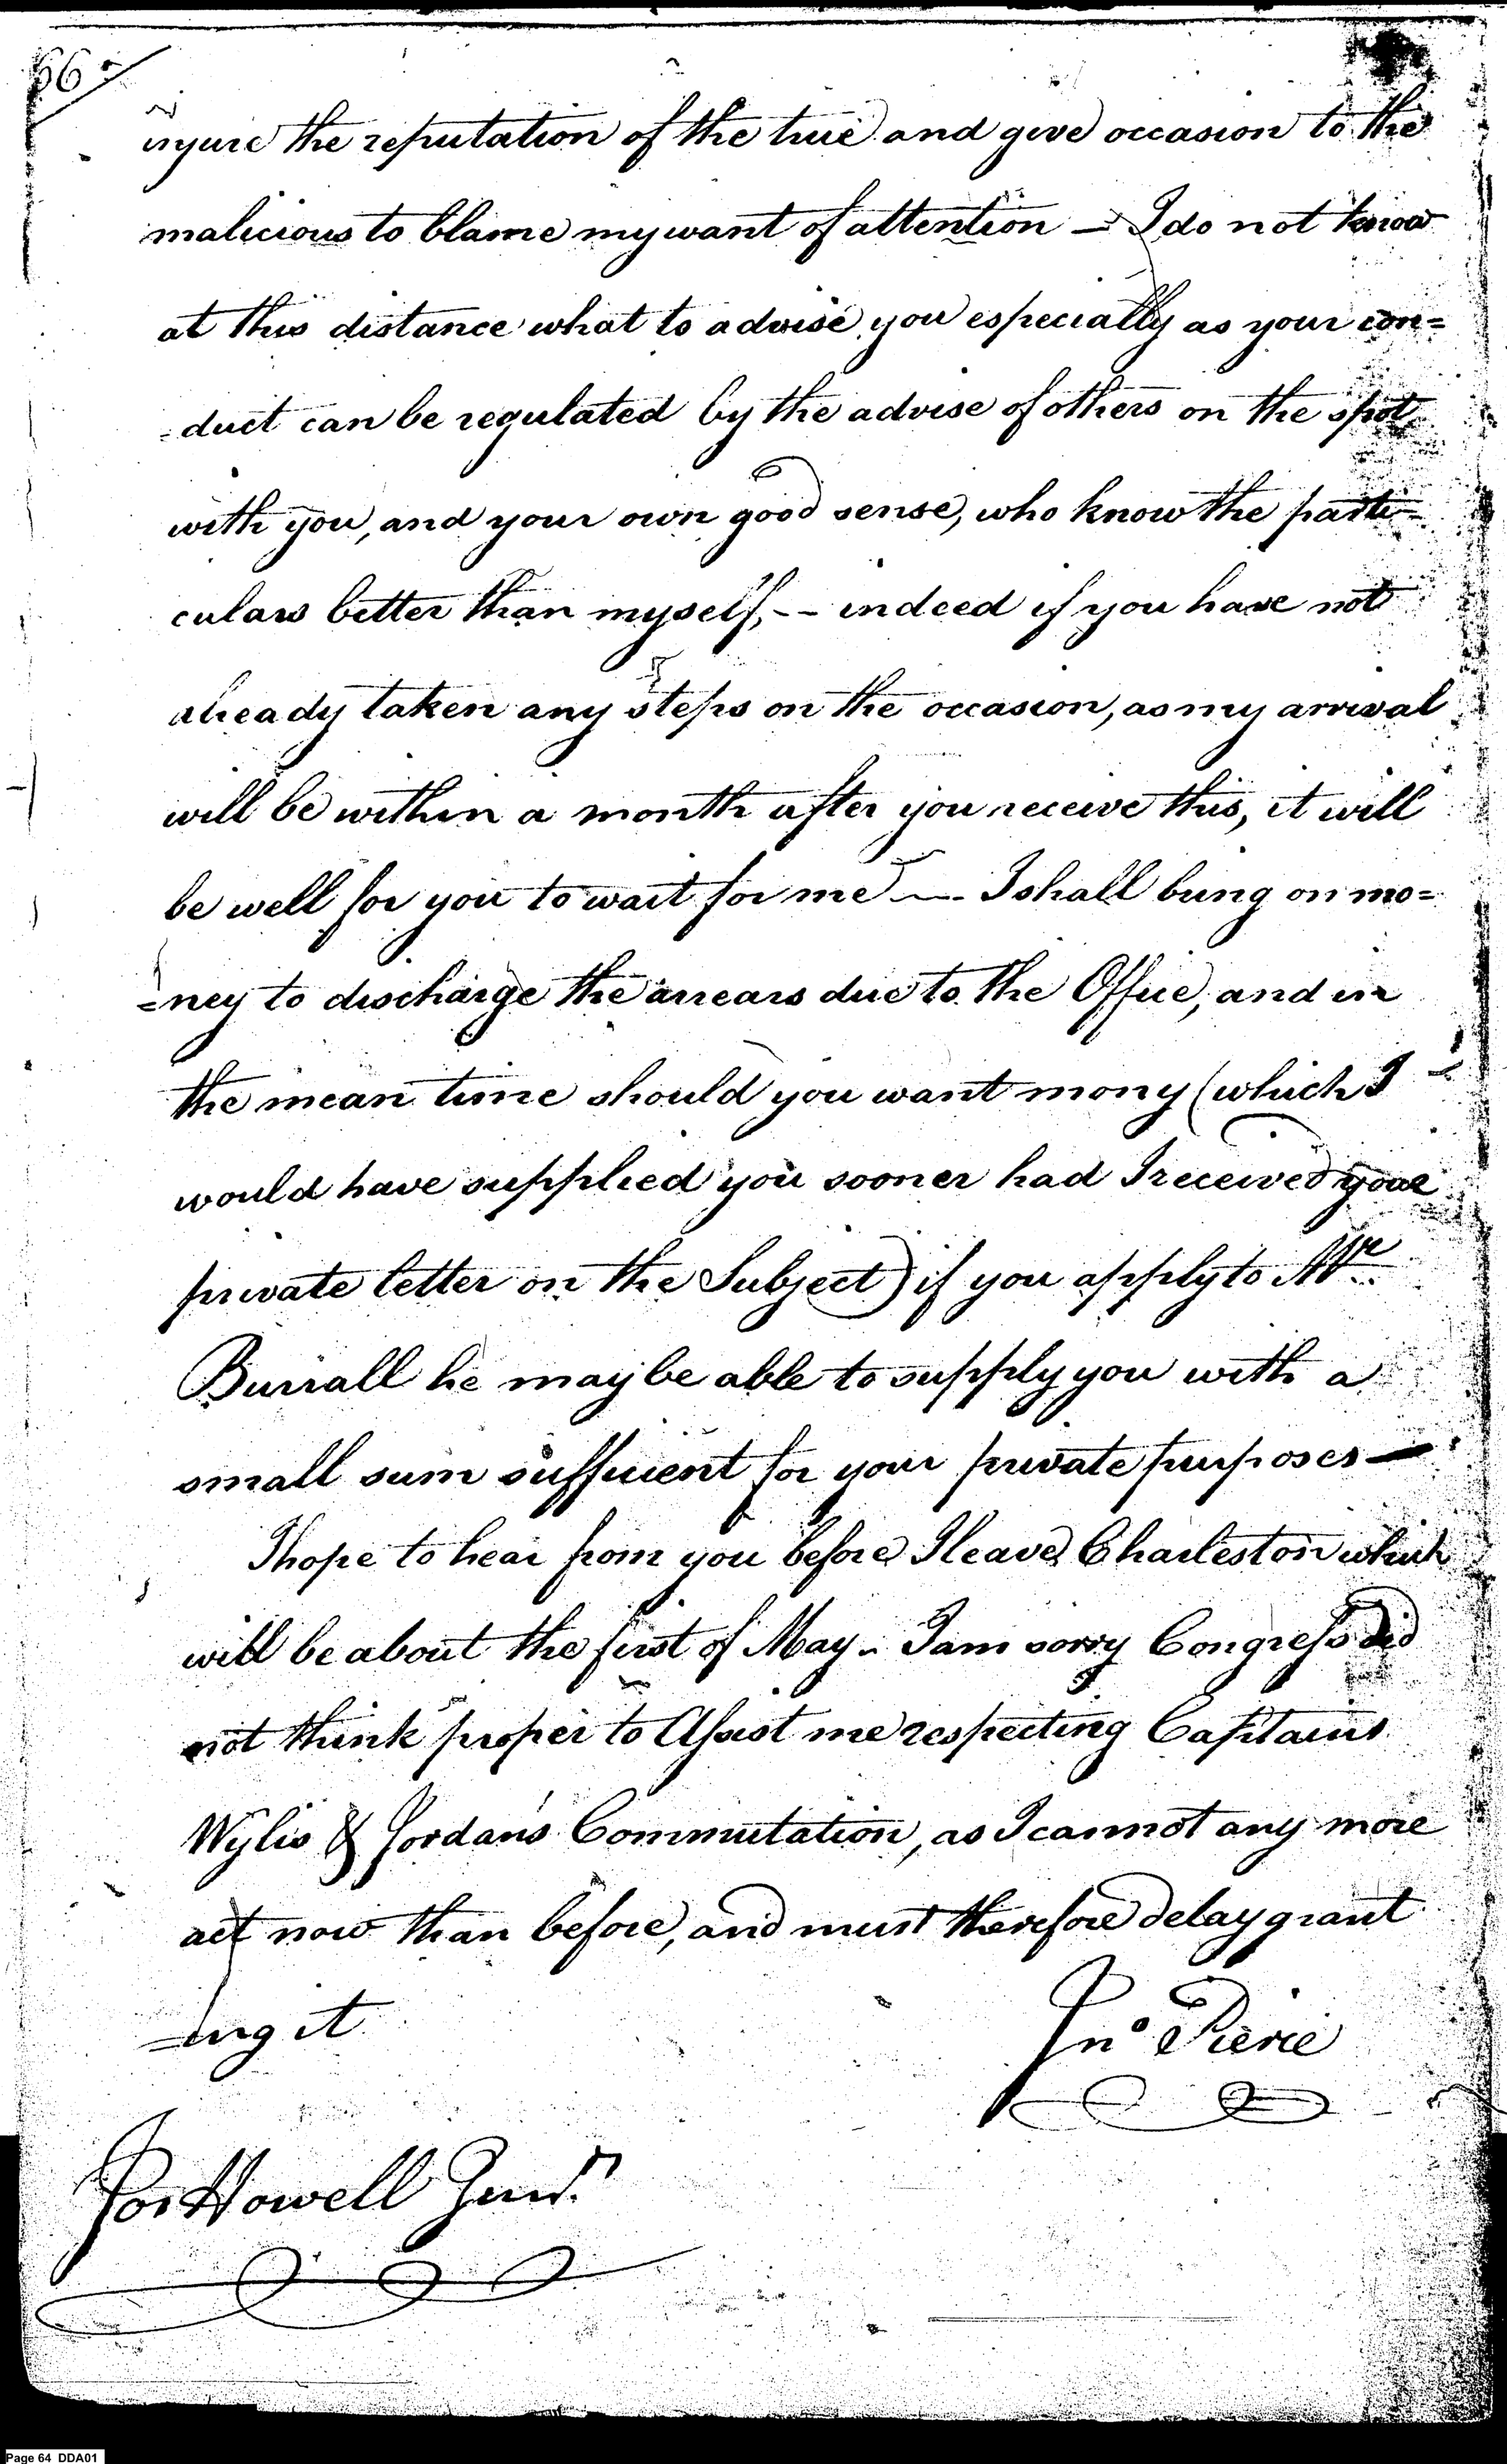 66
injure the reputation of the true and give occasion to the
malicious to blame my want of attention — I do not know
at this distance what to advise you especially as your con=
=duct can be regulated by the advise of others on the spot
with you, and your own good sense, who know the parti=
culars better than myself, -- indeed if you have not
already taken any steps on the occasion, as my arrival
will be within a month after you receive this, it will
be well for you to wait for me — I shall bring on mo=
=ney to discharge the arrears due to the Office, and in
the mean time should you want mony (which I
would have supplied you sooner had I received your
private letter on the Subject) if you apply to Mr
Burrall he may be able to supply you with a
small sum sufficient for your private purposes —
I hope to hear from you before I leave Charleston which
will be about the first of May - I am sorry Congress did
not think proper to Assist me respecting Captains
Wylis & Jordans Commutation, as I cannot any more
act now than before, and must therefore delay grant
=ing it
Jno Pierce
Jos Howell Junr.
Page 64 DDA01